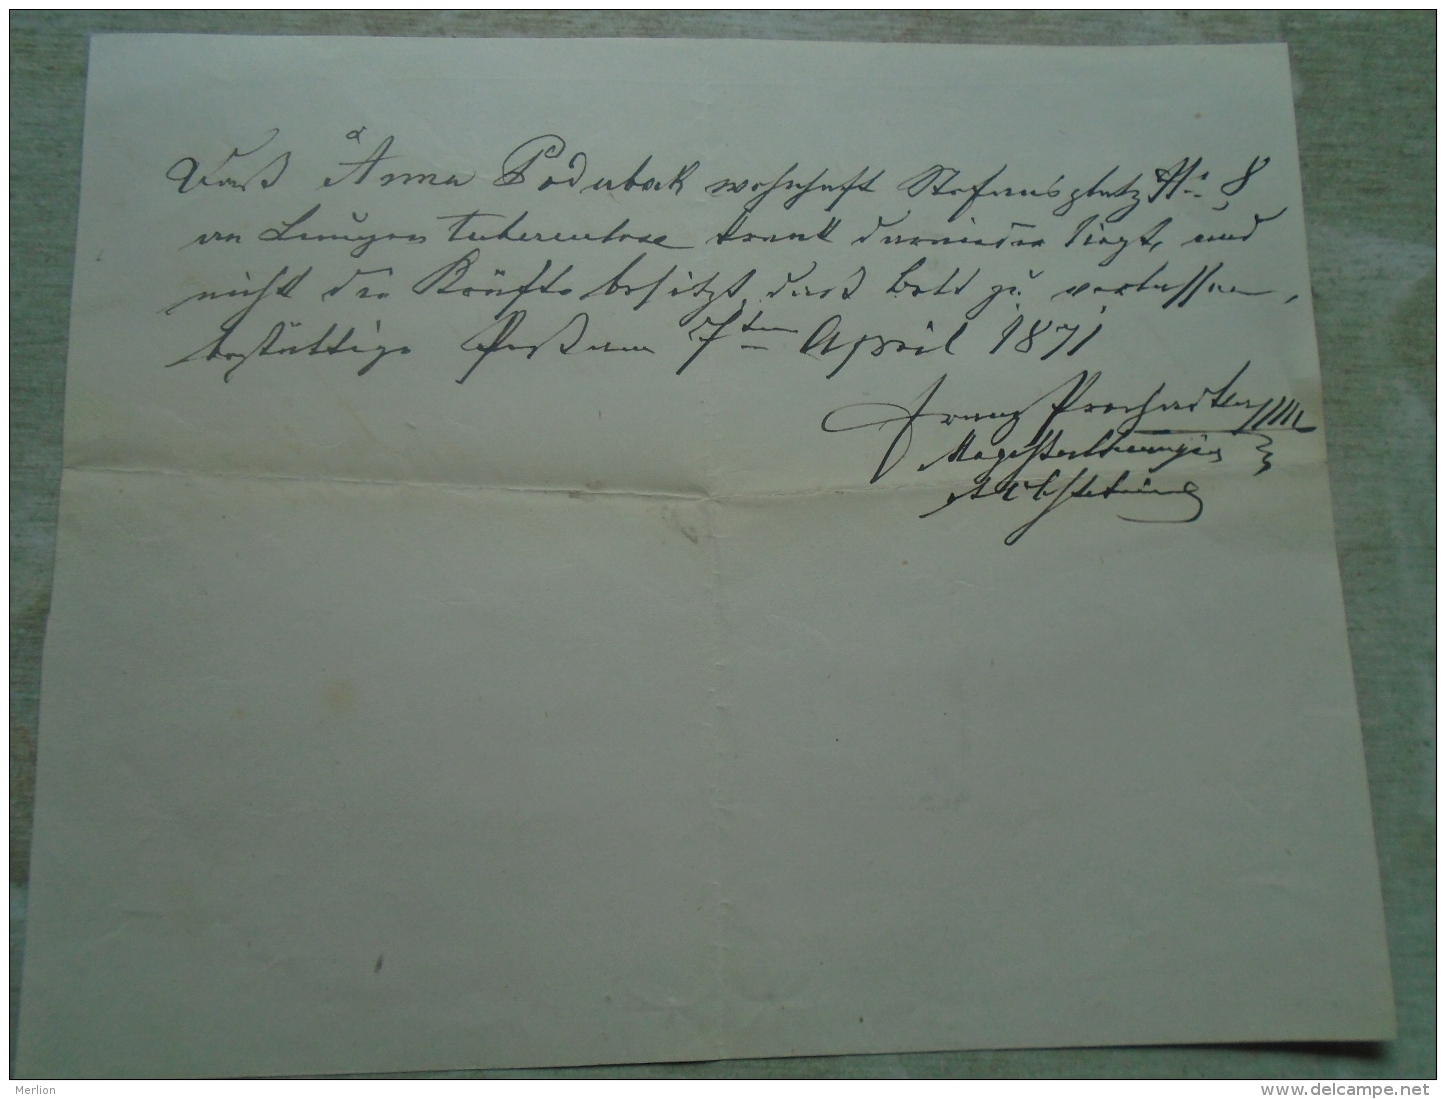 Daß Anna Poderbak wohnhaft Stefansplatz No 8
an Lungen Tuberculose krank darnieder liegt, und
nicht die Kräfte besitzt daß Bett zu verlassen,
bestättige Pest am 7ten April 1871
Franz
Merlion
www.delcampe.net